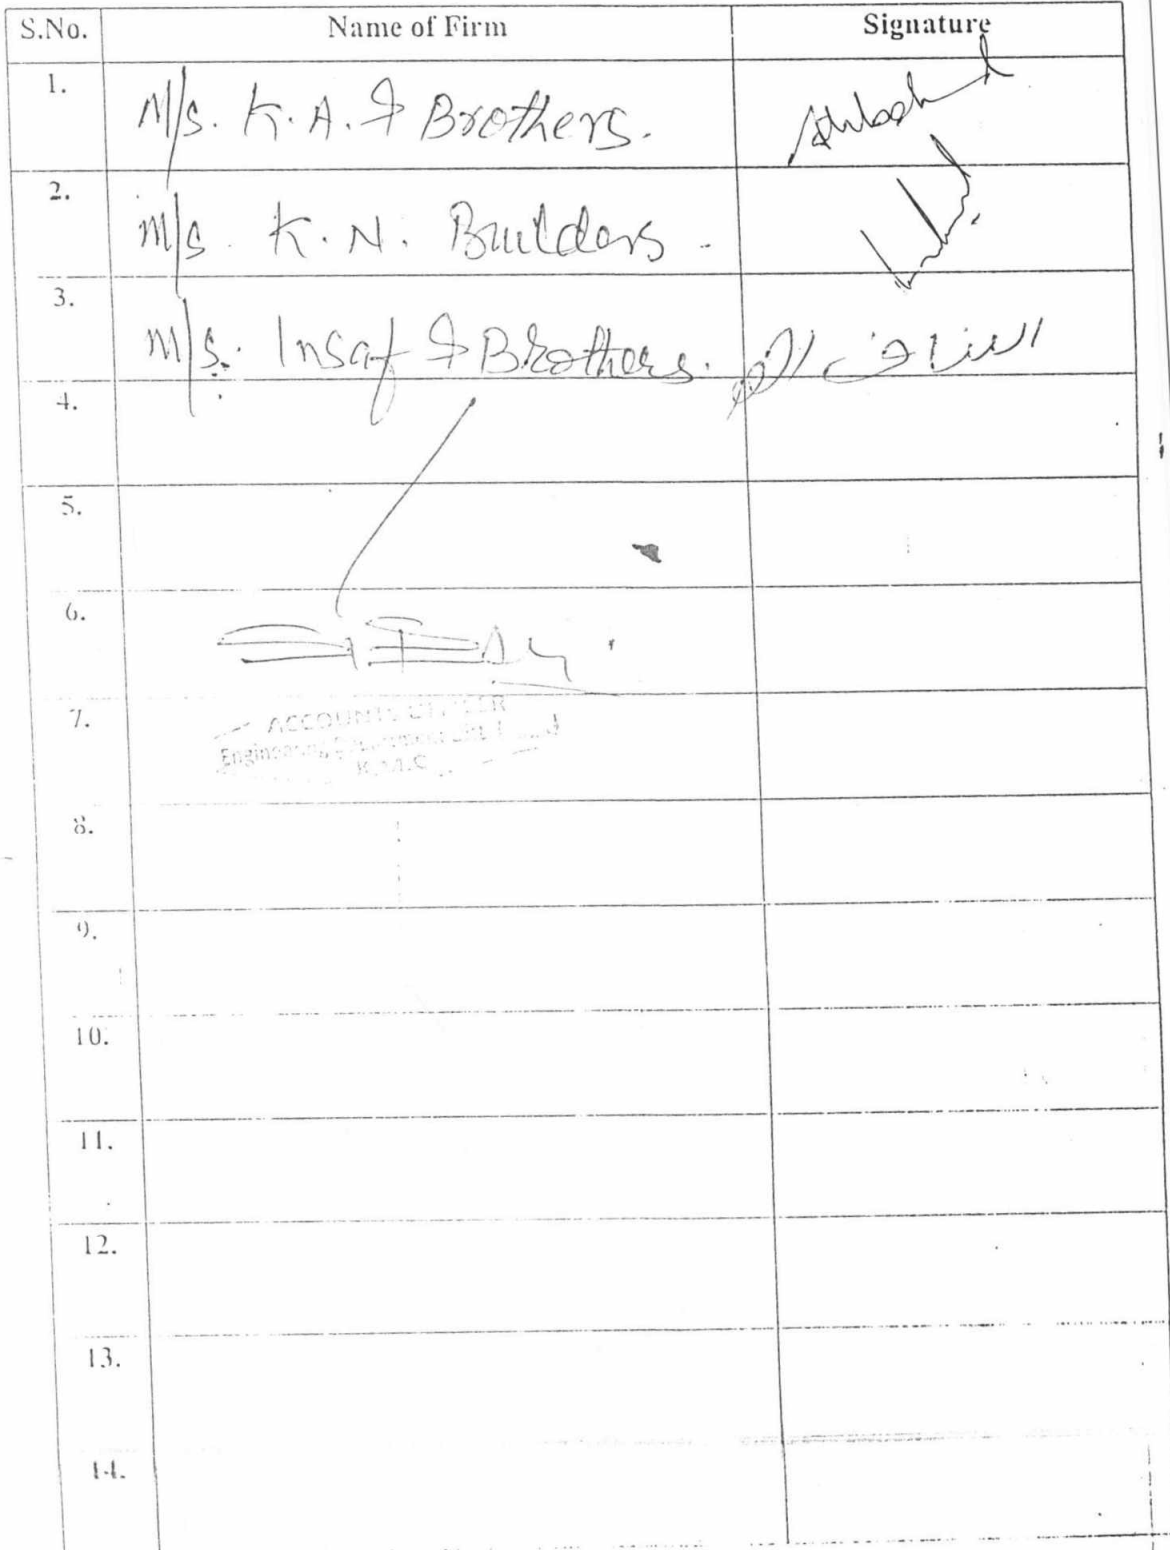 S.No. Name of Firm Signature
1. M/s. K.A. & Brothers.
2. M/s. K.N. Builders.
3. M/s. Insaf & Brothers.
4.
5.
6.
7.
ACCOUNTS OFFICER
K.M.C
8.
9.
10.
11.
12.
13.
14.